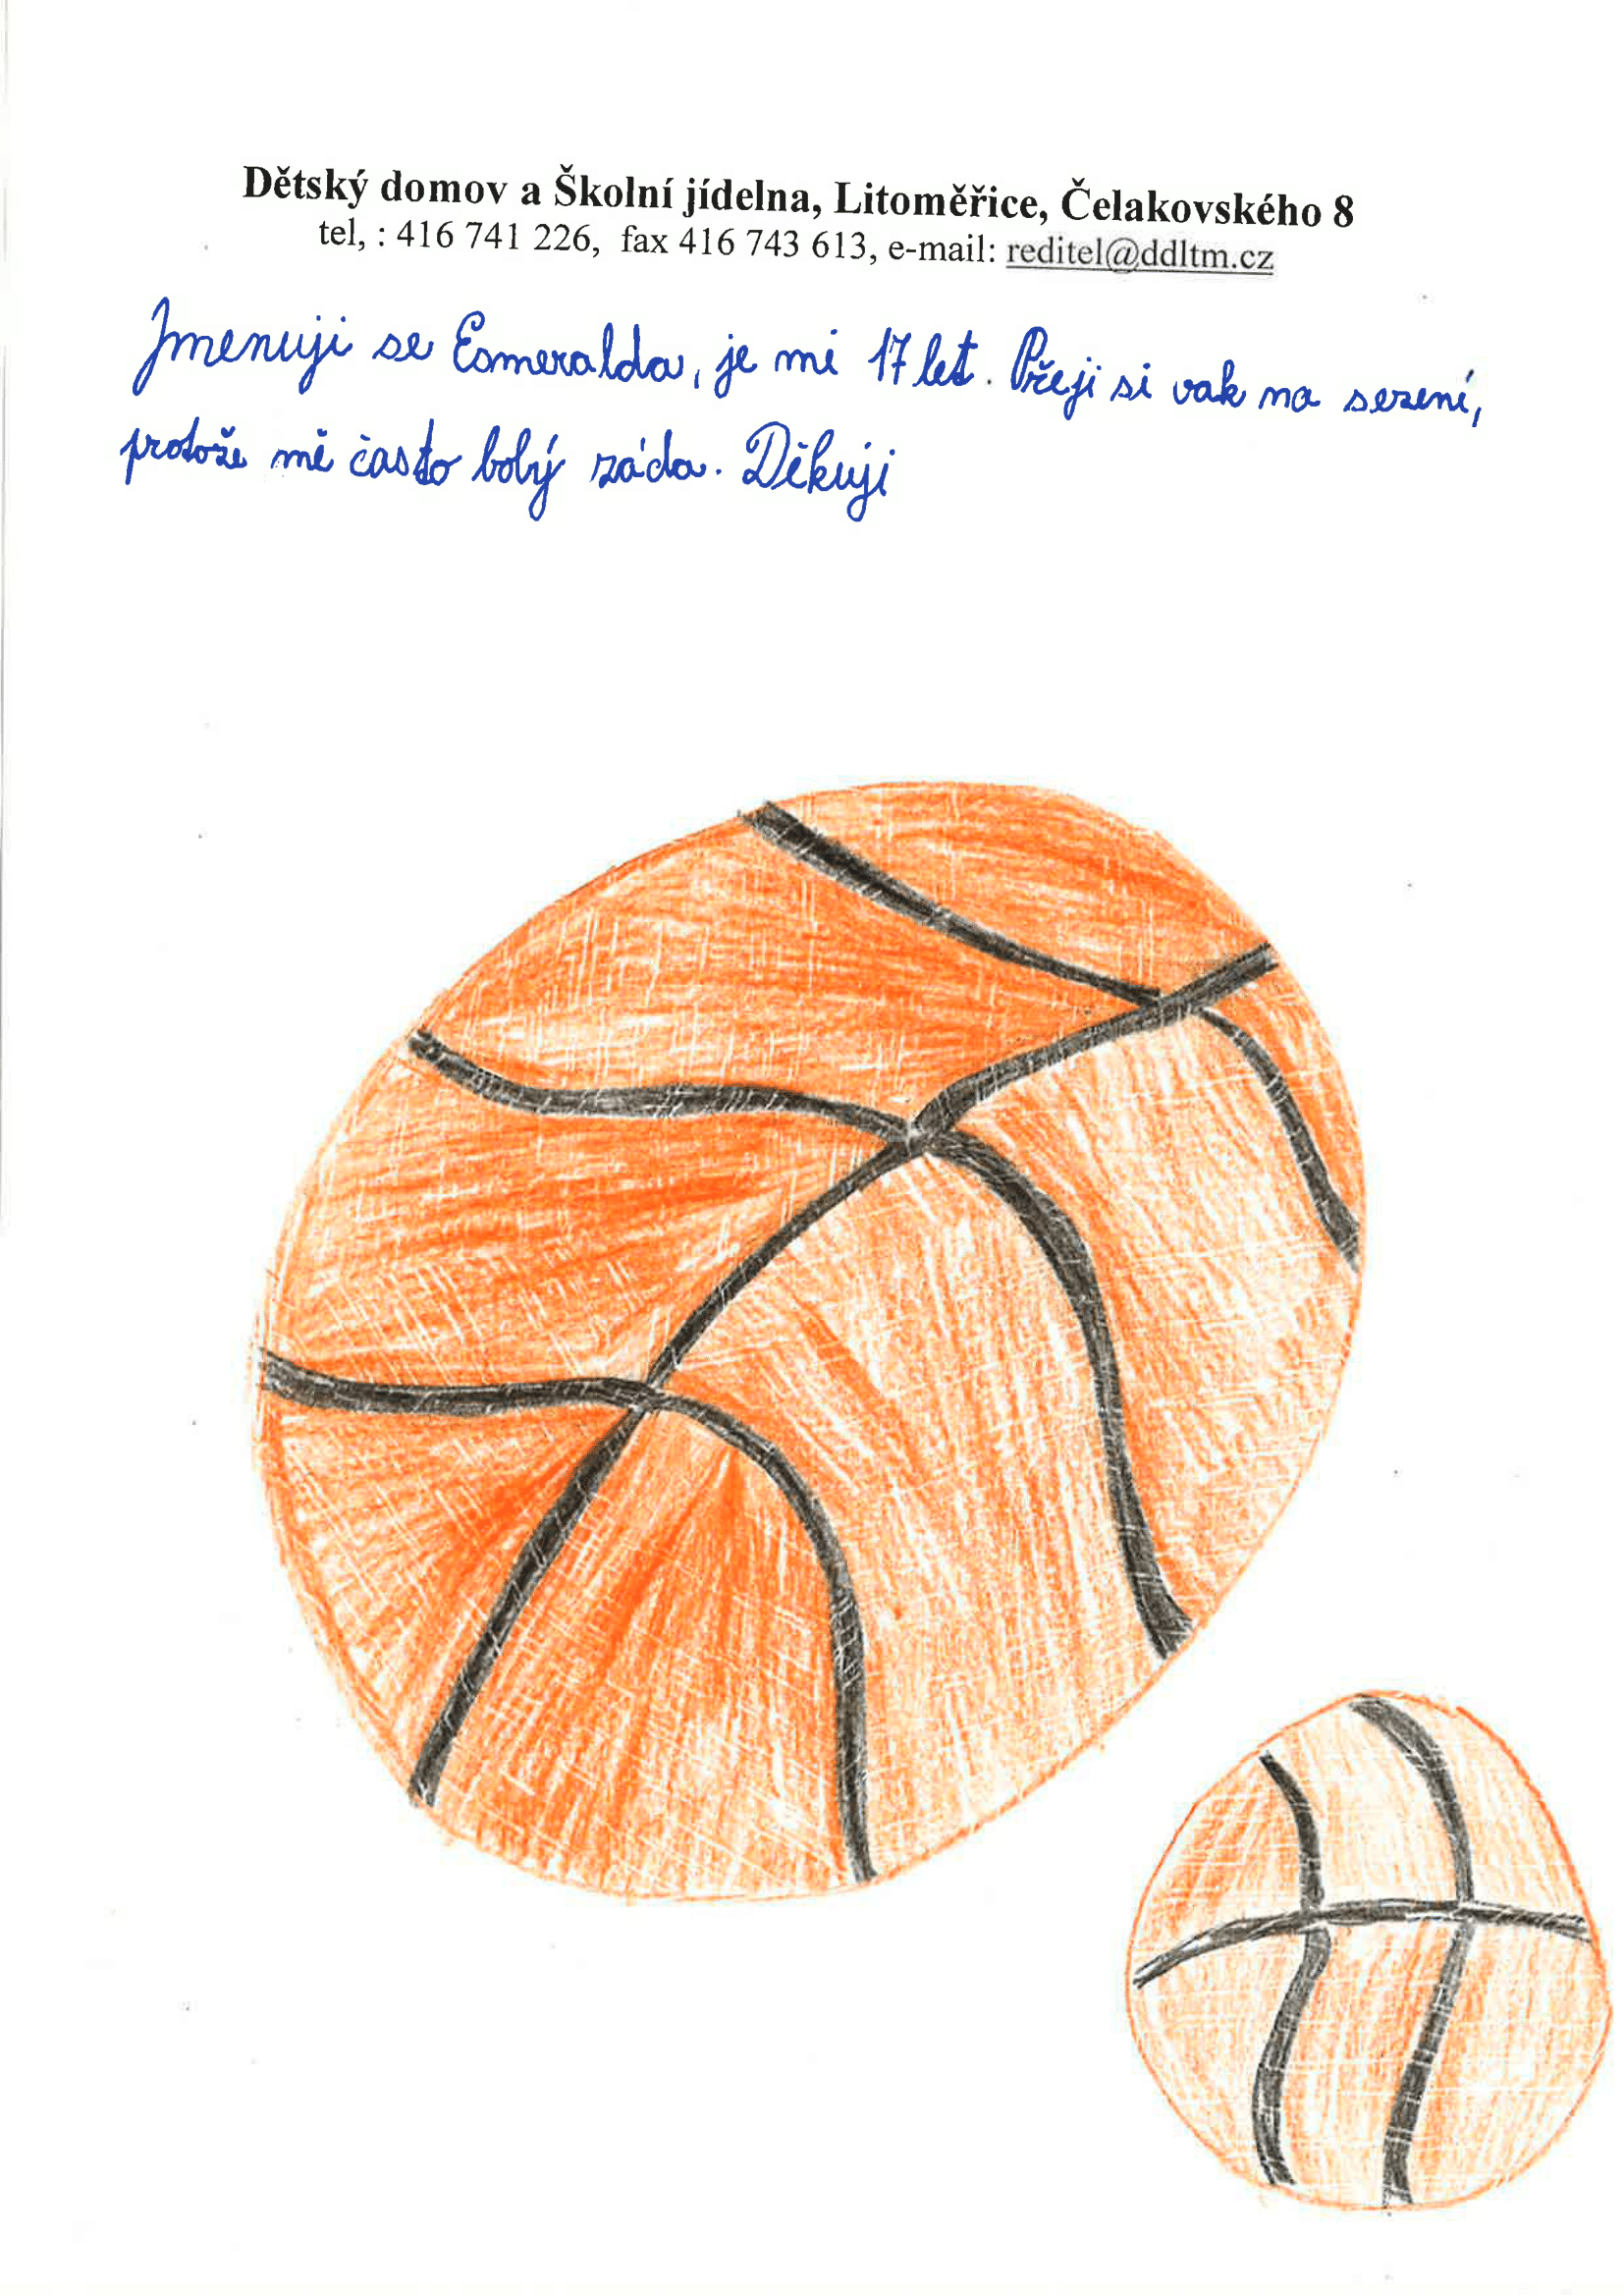 Dětský domov a Školní jídelna, Litoměřice, Čelakovského 8
tel, : 416 741 226, fax 416 743 613, e-mail: reditel@ddltm.cz
Jmenuji se Esmeralda, je mi 17 let. Přeji si vak na sezení,
protože mě často bolý záda. Děkuji